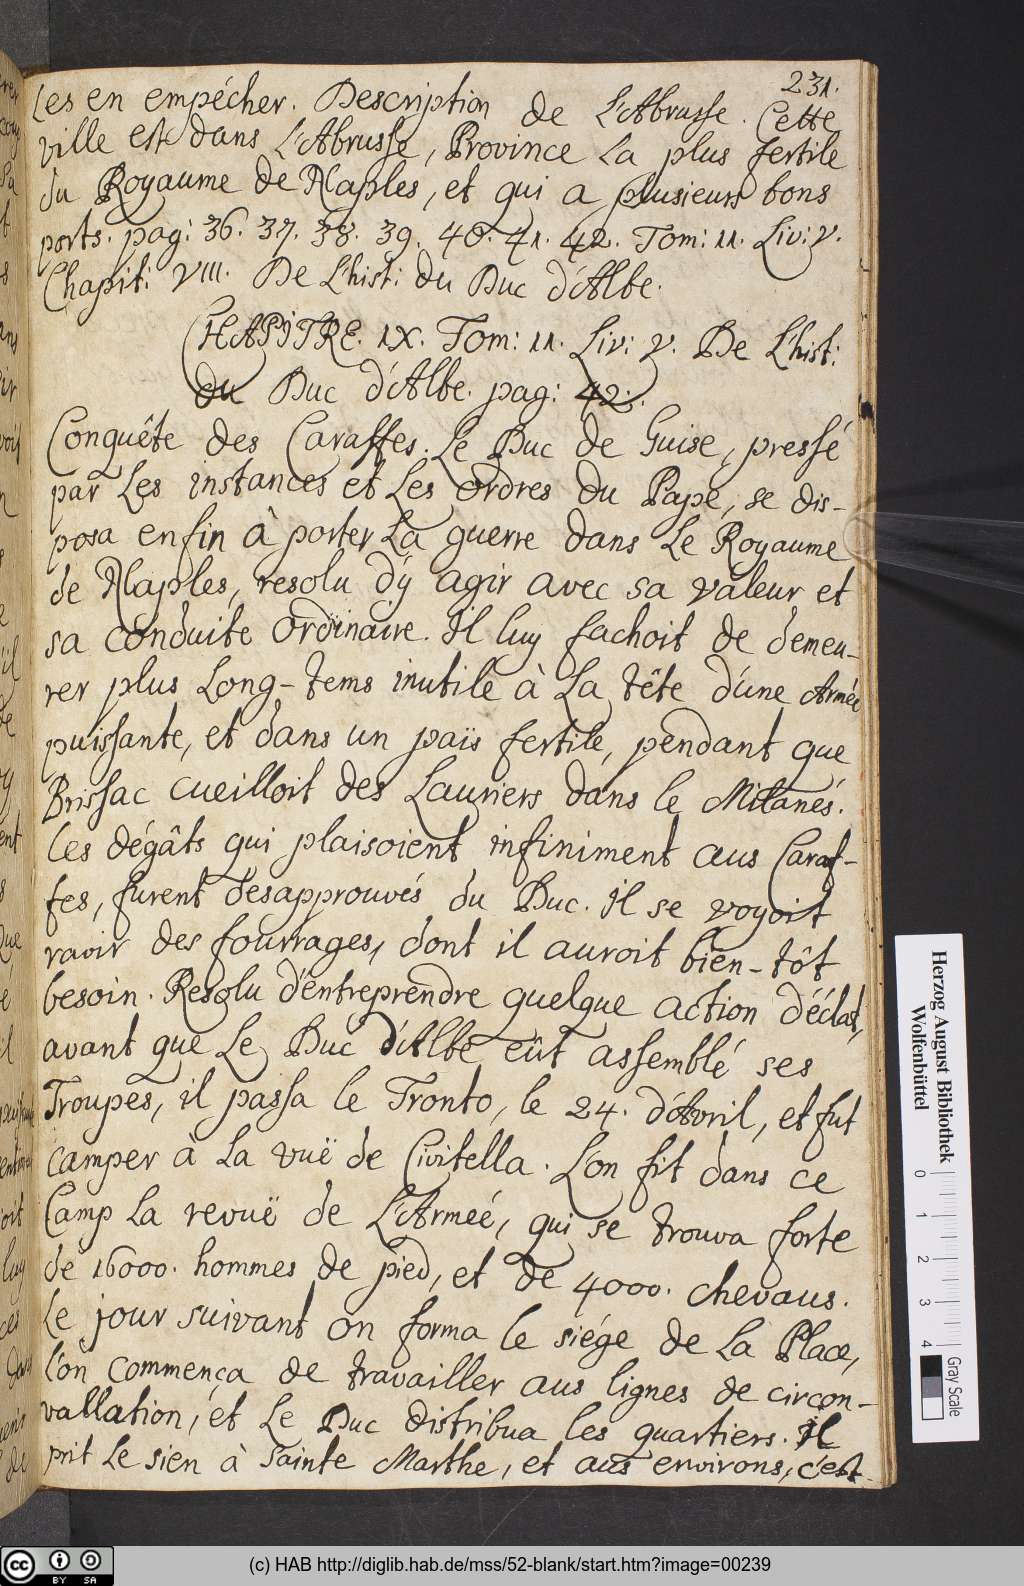 231.
les en empécher. Description de L'Abrusse. Cette
ville est dans L'Abrusse, Province la plus fertile
du Royaume de Naples, et qui a plusieurs bons
ports. pag: 36. 37. 38. 39. 40. 41. 42. Tom: 11. Liv: V.
Chapit: VIII. De L'hist: du Duc d'Albe.
CHAPITRE. IX. Tom: 11. Liv: V. De L'hist:
du Duc d'Albe. pag: 42:.
Conquête des Caraffes. Le Duc de Guise, pressé
par Les instances et Les ordres du Pape, se dis-
posa enfin à porter La guerre dans Le Royaume
de Naples, resolu d'y agir avec sa valeur et
sa conduite ordinaire. Il luy fachoit de demeu-
rer plus Long-tems inutile à La tête d'une Armée
puissante, et dans un païs fertile, pendant que
Brissac cueilloit des Lauriers dans le Milanés.
Les dégâts qui plaisoient infiniment aus Caraf-
fes, furent desapprouvés du Duc. Il se voyoit
ravir des fourrages, dont il auroit bien-tôt
besoin. Resolu d'entreprendre quelque action d'éclat,
avant que Le Duc d'Albe eût assemblé ses
Troupes, il passa le Tronto, le 24. d'Avril, et fut
camper à La vuë de Civitella. L'on fit dans ce
Camp La revuë de L'Armeé, qui se trouva forte
de 16000. hommes de pied, et de 4000. chevaus.
Le jour suivant on forma le siége de La Place,
L'on commença de travailler aus lignes de circon-
vallation, et Le Duc distribua les quartiers. il
prit Le sien à Sainte Marthe, et aus environs, c'est-
Herzog August Bibliothek
Wolfenbüttel
0 1 2 3 4
Gray Scale
cc BY SA
(c) HAB http://diglib.hab.de/mss/52-blank/start.htm?image=00239